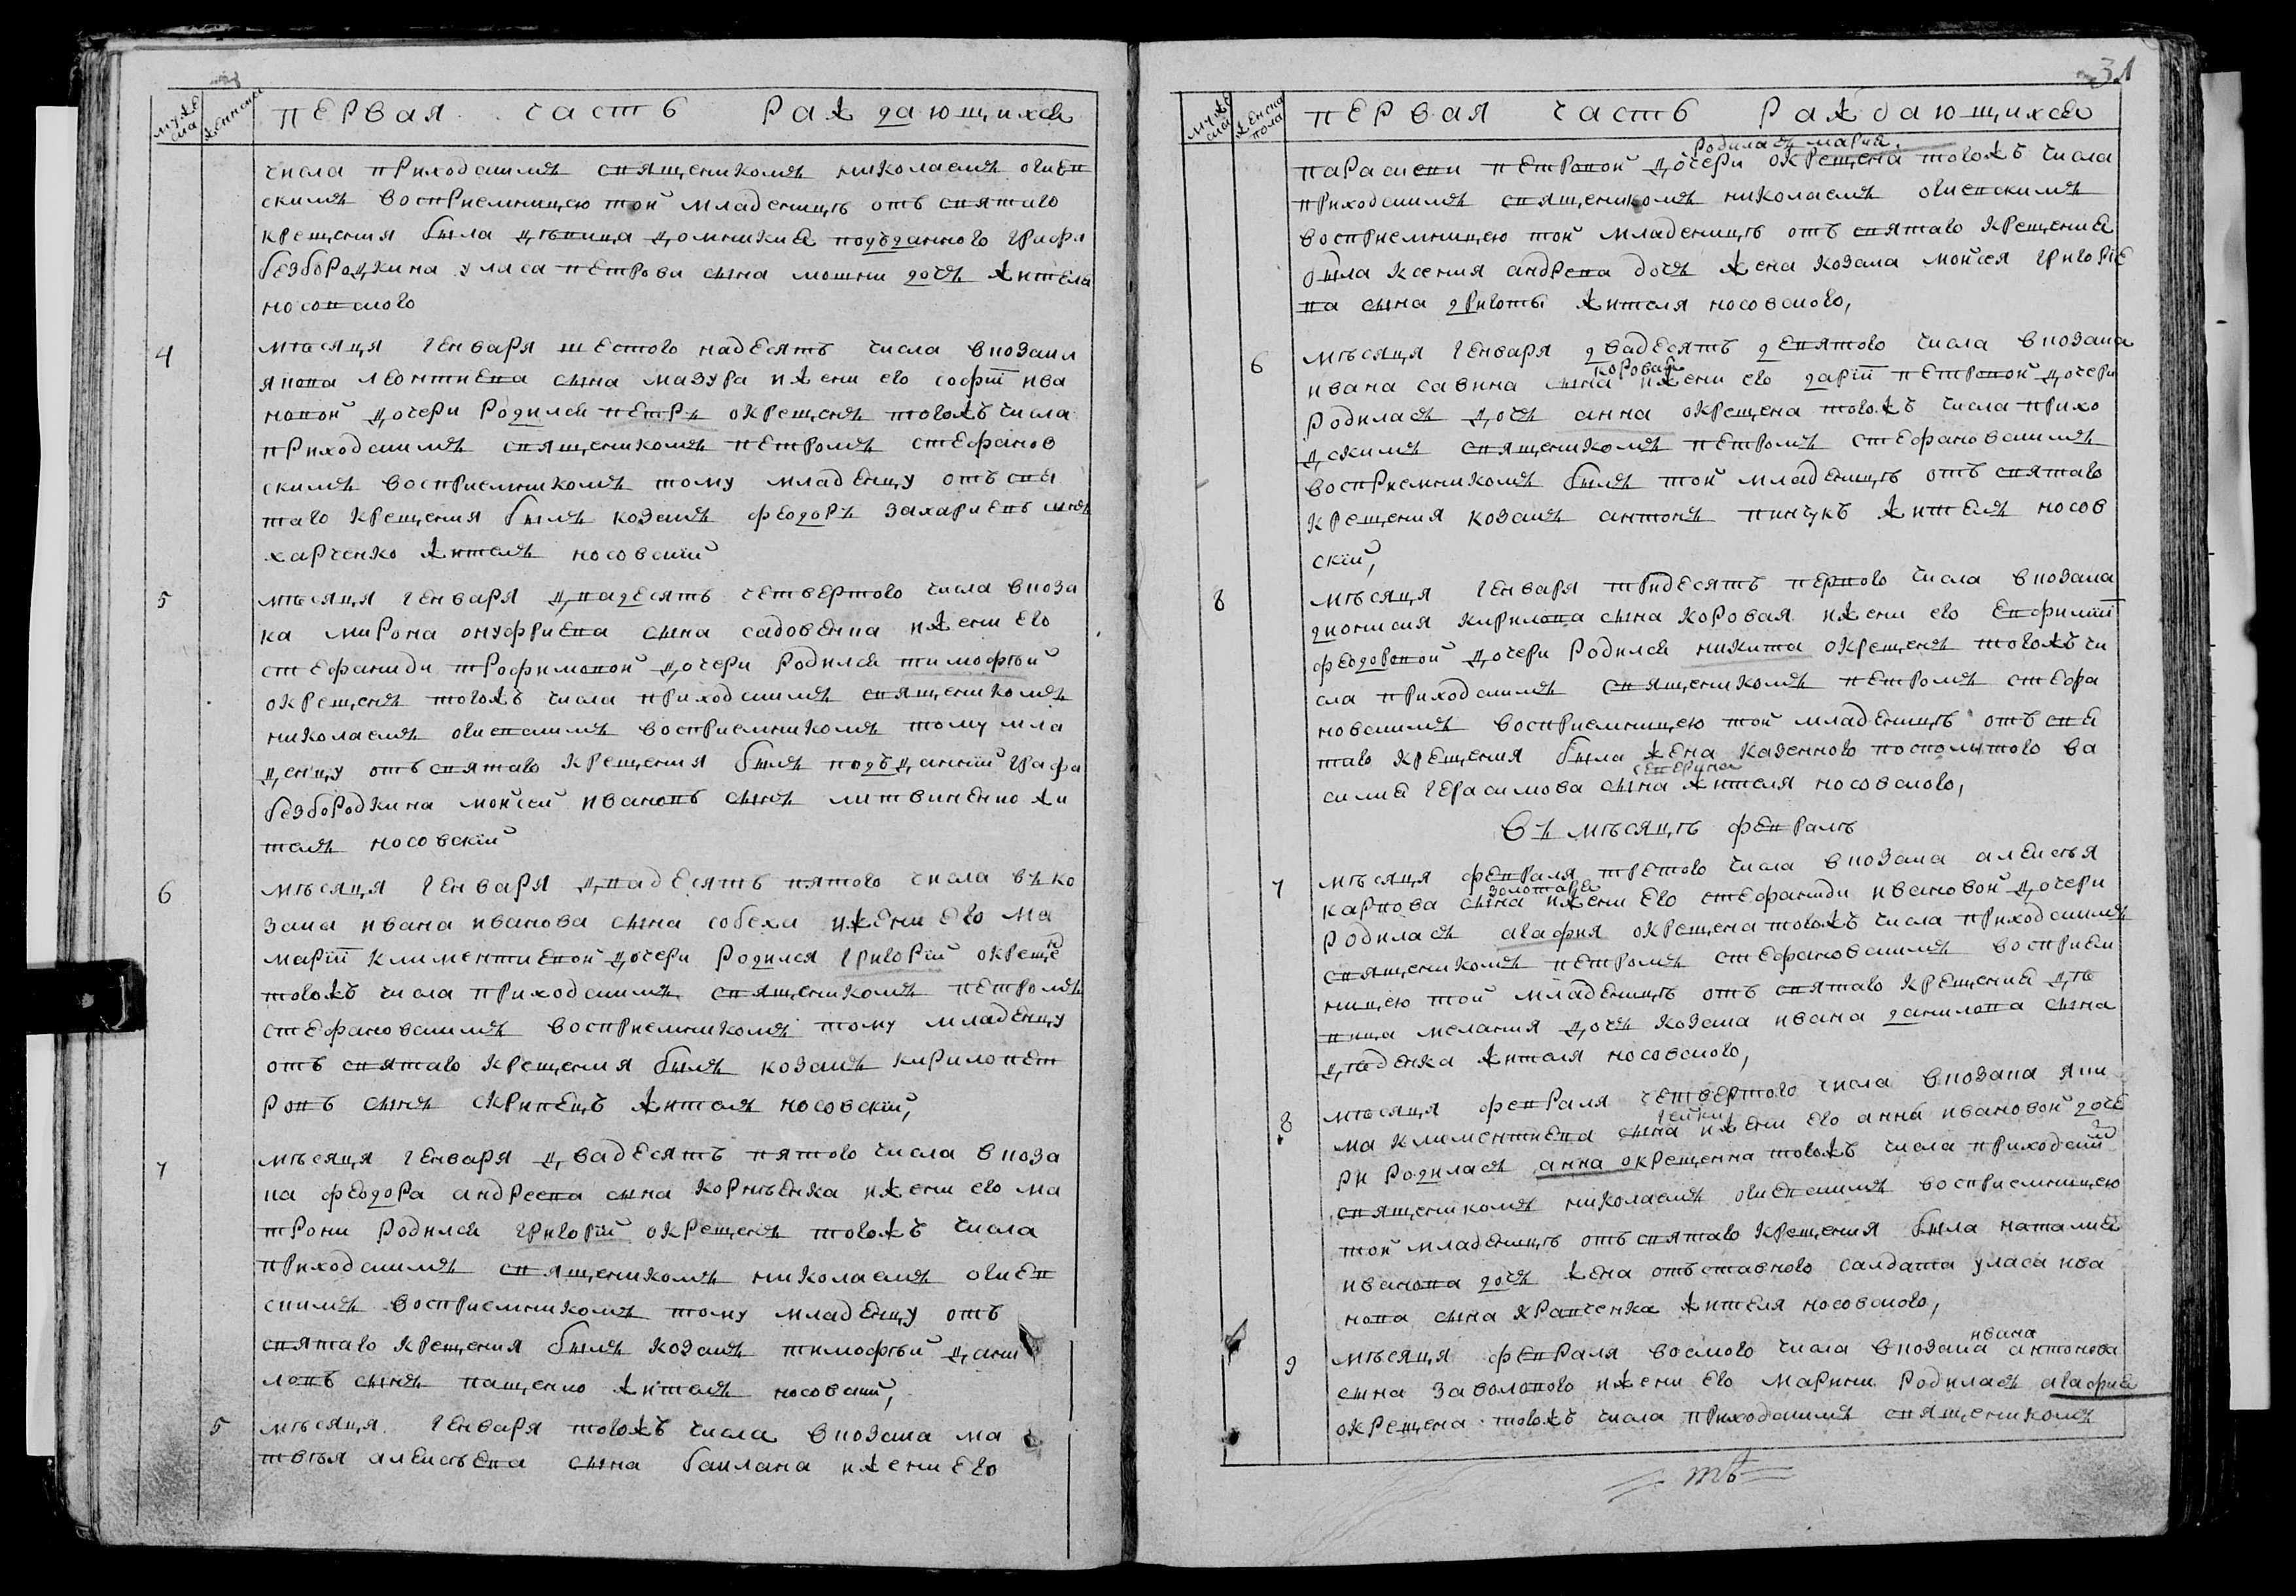 31
мужеска
женска
первая часть раждающихся
числа приходскимъ священикомъ николаемъ огиев
скимъ восприемницею той младеницъ отъ святаго
крещения была дѣвица домникиа подъданного графа
безбородкина уласа петрова сына мошни дочь жителя
носовского
4
мѣсяця генваря шестого надесять числа вкозака
якова леонтиева сына мазура ижени его софіи ива
новой дочери родился петръ окрещенъ тогожъ числа
приходскимъ священикомъ петромъ стефанов
скимъ восприемникомъ тому младенцу отъ свя
таго крещения былъ козакъ феодоръ захариевъ синъ
харченко житель носовскій
5
мѣсяця генваря двадесять четвертого числа вкоза
ка мирона онуфриева сына садовенка ижени его
стефаниди трофимовой дочери родился тимофѣй
окрещенъ тогожъ числа приходскимъ священикомъ
николаемъ огиевскимъ восприемникомъ тому мла
денцу отъ святаго крещения былъ подъданнии графа
безбородкина моисей ивановъ сынъ литвиненко жи
тель носовскій
6
мѣсяця генваря двадесять пятого числа въ ко
зака ивана иванова сына собеха ижени его ма
маріи климентиевой дочери родился григорій окреще
тогожъ числа приходскимъ священикомъ петромъ
стефановскимъ восприемникомъ тому младенцу
отъ святаго крещения былъ козакъ кирило пет
ровъ сынъ скрипецъ житель носовскій,
7
мѣсяця генваря двадесять пятого числа вкоза
ка феодора андреева сына корнѣенка ижени его ма
трони родился григорій окрещенъ тогожъ числа
приходскимъ священикомъ николаемъ огиев
скимъ восприемникомъ тому младенцу отъ
святаго крещения былъ козакъ тимофѣй дани
ловъ сынъ пащенко житель носовский,
5
мѣсяця генваря тогожъ числа вкозака ма
твѣя алексѣева сына баклана ижени его
мужеска
женска пола
первая часть раждающихся
родилась мария.
параскеви петровой дочери окрещена тогожъ числа
приходскимъ священикомъ николаемъ огиевскимъ
восприемницею той младеницъ отъ святаго крещения
была ксения андреева дочь жена козака мойсея григорие
ва сына дриготы жителя носовского,
6
мѣсяця генваря двадесять девятого числа вкозака
коровая
ивана савина сына ижени его даріи петровой дочери
родилась дочь анна окрещена тогожъ числа прихо
дскимъ священикомъ петромъ стефановскимъ
восприемникомъ былъ той младеницъ отъ святаго
крещения козакъ антонъ пинчукъ житель носов
скій,
8
мѣсяця генваря тридесять первого числа вкозака
дионисия кирилова сына коровая ижени его евфиміи
феодоровой дочери родился никита окрещенъ тогожъ чи
сла приходскимъ священикомъ петромъ стефа
новскимъ восприемницею той младеницъ отъ свя
таго крещения была жена казенного посполитого ва
силиа герасимова сына жителя носовского,
въ мѣсяцъ февралъ
7
мѣсяця февраля третого числа вкозака алексѣя
золотара
карпова сына ижени его стефаниди ивановой дочери
родилась агафия окрещена тогожъ числа приходскимъ
священикомъ петромъ стефановскимъ восприем
ницею той младеницъ отъ святаго крещения дѣ
вица мелания дочь козака ивана данилова сына
дѣденка жителя носовского,
8
мѣсяця февраля четвертого числа вкозака яки
ма климентиева сына ижени его анны ивановой доче
ри родилась анна окрещенна тогожъ числа приходским
священикомъ николаемъ огиевскимъ восприемницею
той младеницъ отъ святаго крещения была наталия
иванова дочь жена отъставного салдата уласа ива
нова сына кравченка жителя носовского,
9
ивана
мѣсяця февраля восмого числа вкозака антонова
сына заволокого ижени его марини родилась агафия
окрещена тогожъ числа приходскимъ священикомъ